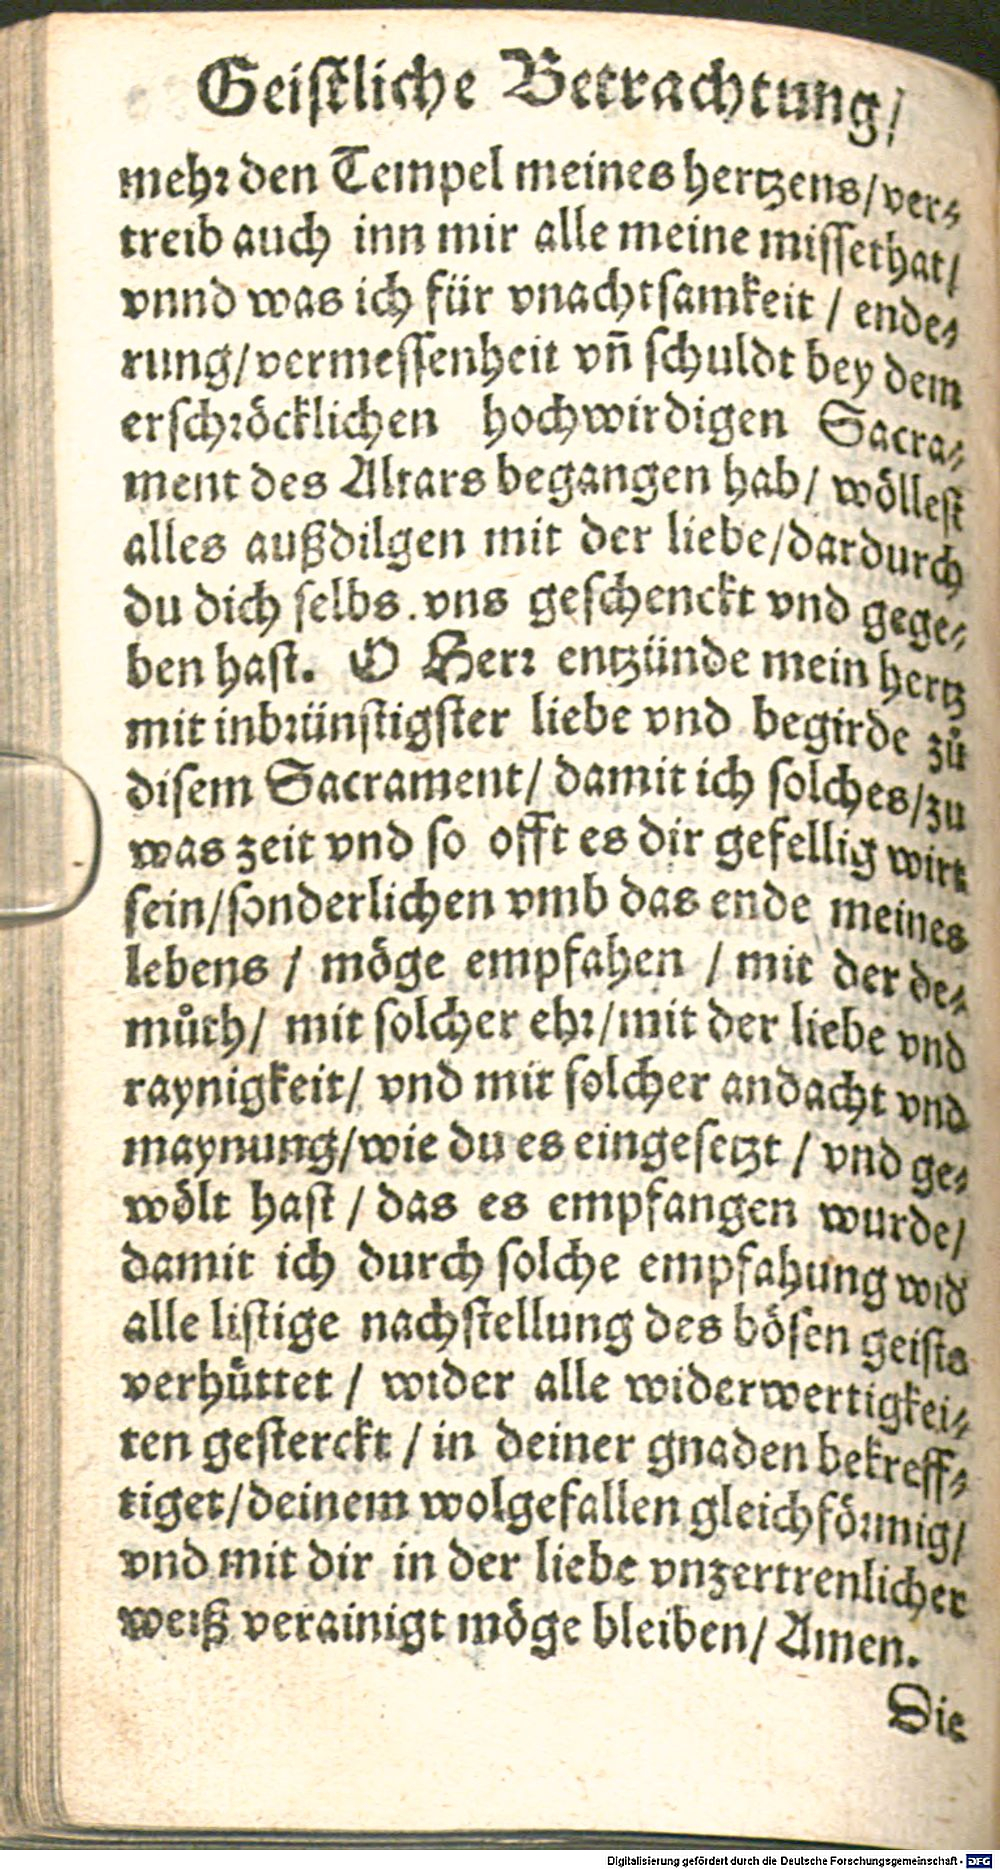 Geistliche Betrachtung/
mehr den Tempel meines hertzens/ver⸗
treib auch inn mir alle meine missethat/
vnnd was ich für vnachtsamkeit / ende⸗
rung/vermessenheit vñ schuldt bey dem
erschröcklichen hochwirdigen Sacra⸗
ment des Altars begangen hab/ wöllest
alles außdilgen mit der liebe/dardurch
du dich selbs. vns geschenckt vnd gege⸗
ben hast. O Herr entzünde mein hertz
mit inbrünstigster liebe vnd begirde zů
disem Sacrament/ damit ich solches/zu
was zeit vnd so offt es dir gefellig wirt
sein/sonderlichen vmb das ende meines
lebens / möge empfahen / mit der de⸗
můth/ mit solcher ehr/mit der liebe vnd
raynigkeit/ vnd mit solcher andacht vnd
maynung/wie du es eingesetzt / vnd ge⸗
wölt hast / das es empfangen wurde/
damit ich durch solche empfahung wid
alle listige nachstellung des bösen geists
verhüttet / wider alle widerwertigkei⸗
ten gesterckt / in deiner gnaden bekreff⸗
tiget/deinem wolgefallen gleichförmig/
vnd mit dir in der liebe vnzertrenlicher
weiß verainigt möge bleiben/ Amen.
Die
Digitalisierung gefördert durch die Deutsche Forschungsgemeinschaft - DFG